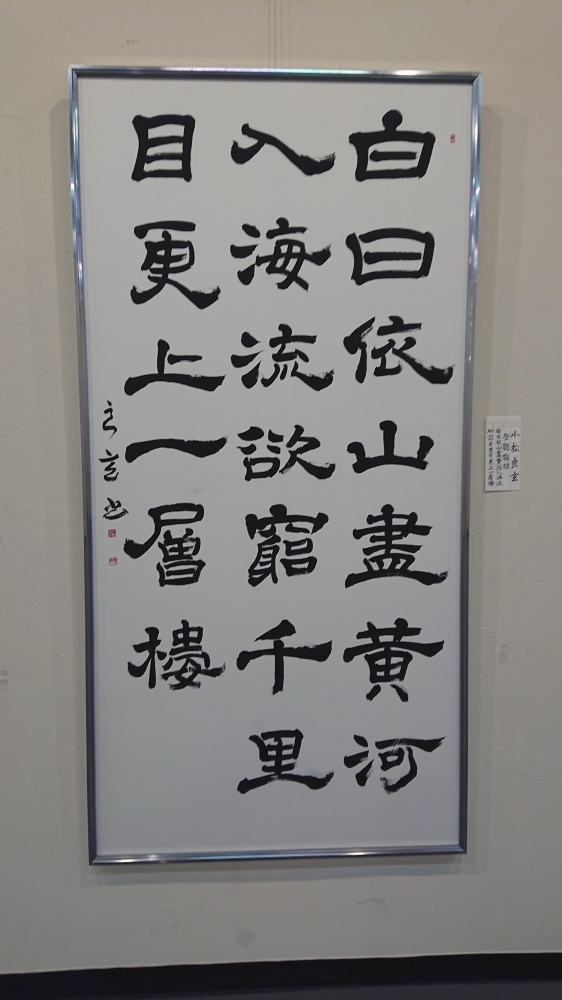 白日依山盡黄河
入海流欲窮千里
目更上一層樓
小松良玄
登鸛鵲楼
白日依山盡黄河入海流
欲窮千里目更上一層樓